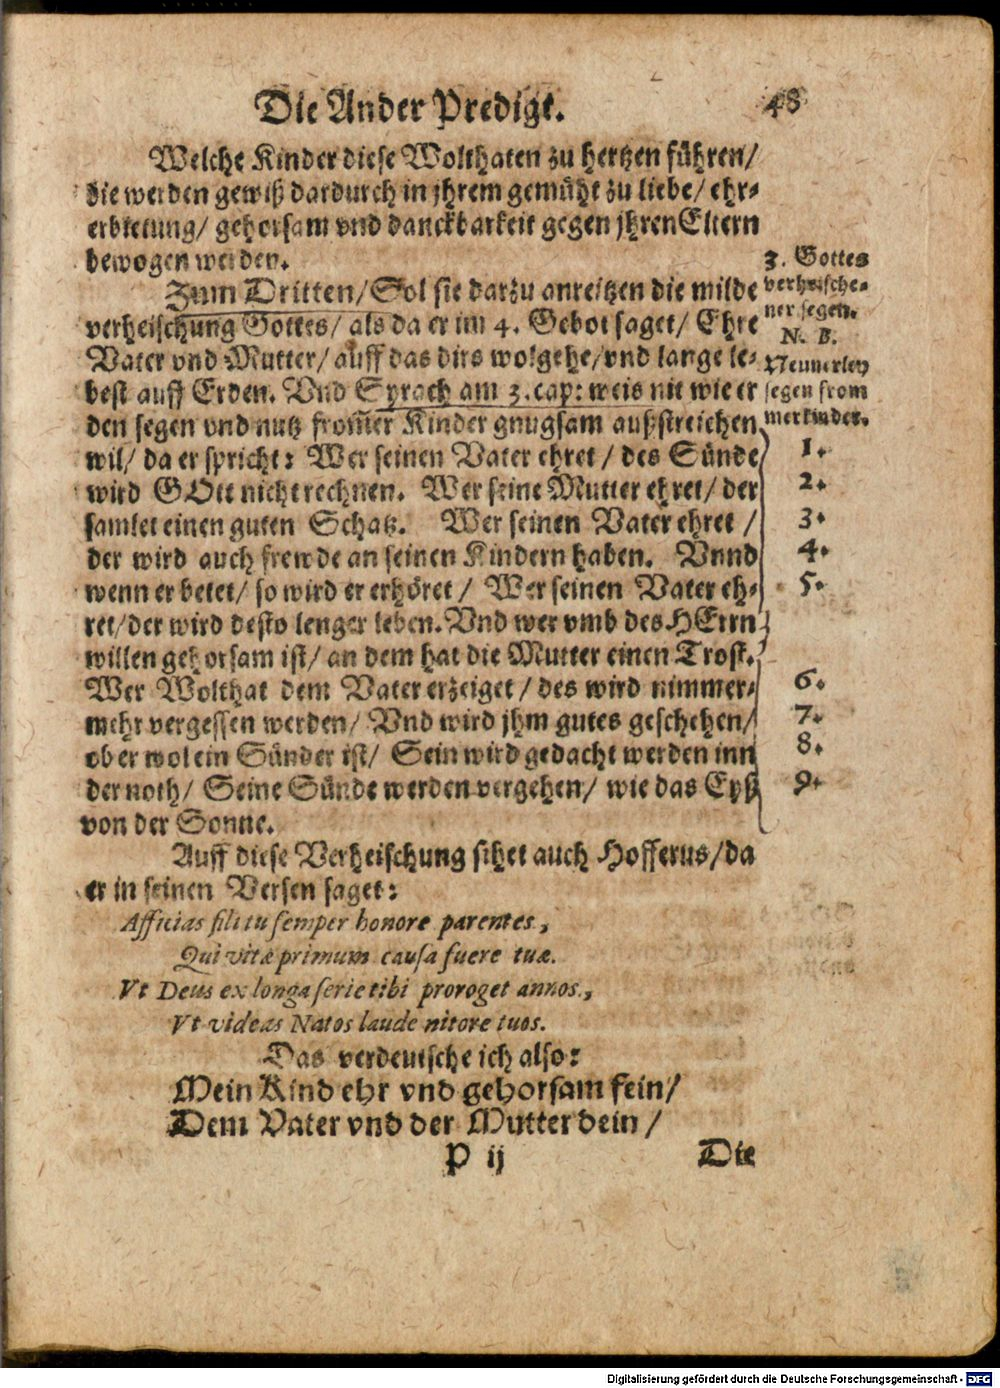 Die Ander Predigt.
48
Welche Kinder diese Wolthaten zu hertzen führen/
die werden gewiß dardurch in jhrem gemüht zu liebe/ ehr-
erbietung/ gehorsam vnd danckbarkeit gegen jhren Eltern
bewogen werden.
Zum Dritten/ Sol sie darzu anreitzen die milde
verheischung Gottes/ als da er im 4. Gebot saget/ Ehre
Vater vnd Mutter/ auff das dirs wolgehe/ vnd lange le-
best auff Erden. Vnd Syrach am 3. cap: weis nit wie er
den segen vnd nutz from̃er Kinder gnugsam außstreichen
wil/ da er spricht: Wer seinen Vater ehret/ des Sünde
wird GOtt nicht rechnen. Wer seine Mutter ehret/ der
samlet einen guten Schatz. Wer seinen Vater ehret/
der wird auch frewde an seinen Kindern haben. Vnnd
wenn er betet/ so wird er erhöret/ Wer seinen Vater eh-
ret/ der wird desto lenger leben. Vnd wer vmb des HErrn
willen gehorsam ist/ an dem hat die Mutter einen Trost.
Wer Wolthat dem Vater erzeiget/ des wird nimmer-
mehr vergessen werden/ Vnd wird jhm gutes geschehen/
ob er wol ein Sünder ist/ Sein wird gedacht werden inn
der noth/ Seine Sünde werden vergehen/ wie das Eyß
von der Sonne.
Auff diese Verheischung sihet auch Hofferus/ da
er in seinen Versen saget:
Afficias fili tu semper honore parentes,
Qui vitæ primum causa fuere tuæ.
Vt Deus ex longa serie tibi proroget annos,
Vt videas Natos laude nitore tuos.
Das verdeutsche ich also:
Mein Kind ehr vnd gehorsam fein/
Dem Vater vnd der Mutter dein/
P ij
Die
3. Gottes
verheische-
ner segen.
N. B.
Neunerley
segen from
mer kinder.
1.
2.
3.
4.
5.
6.
7.
8.
9.
Digitalisierung gefördert durch die Deutsche Forschungsgemeinschaft - DFG